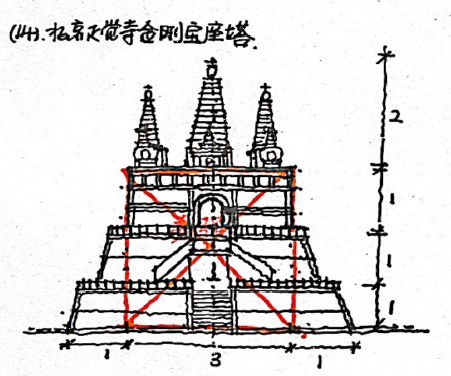 (14).北京正觉寺金刚宝座塔.
2
1
1
1
1 3 1